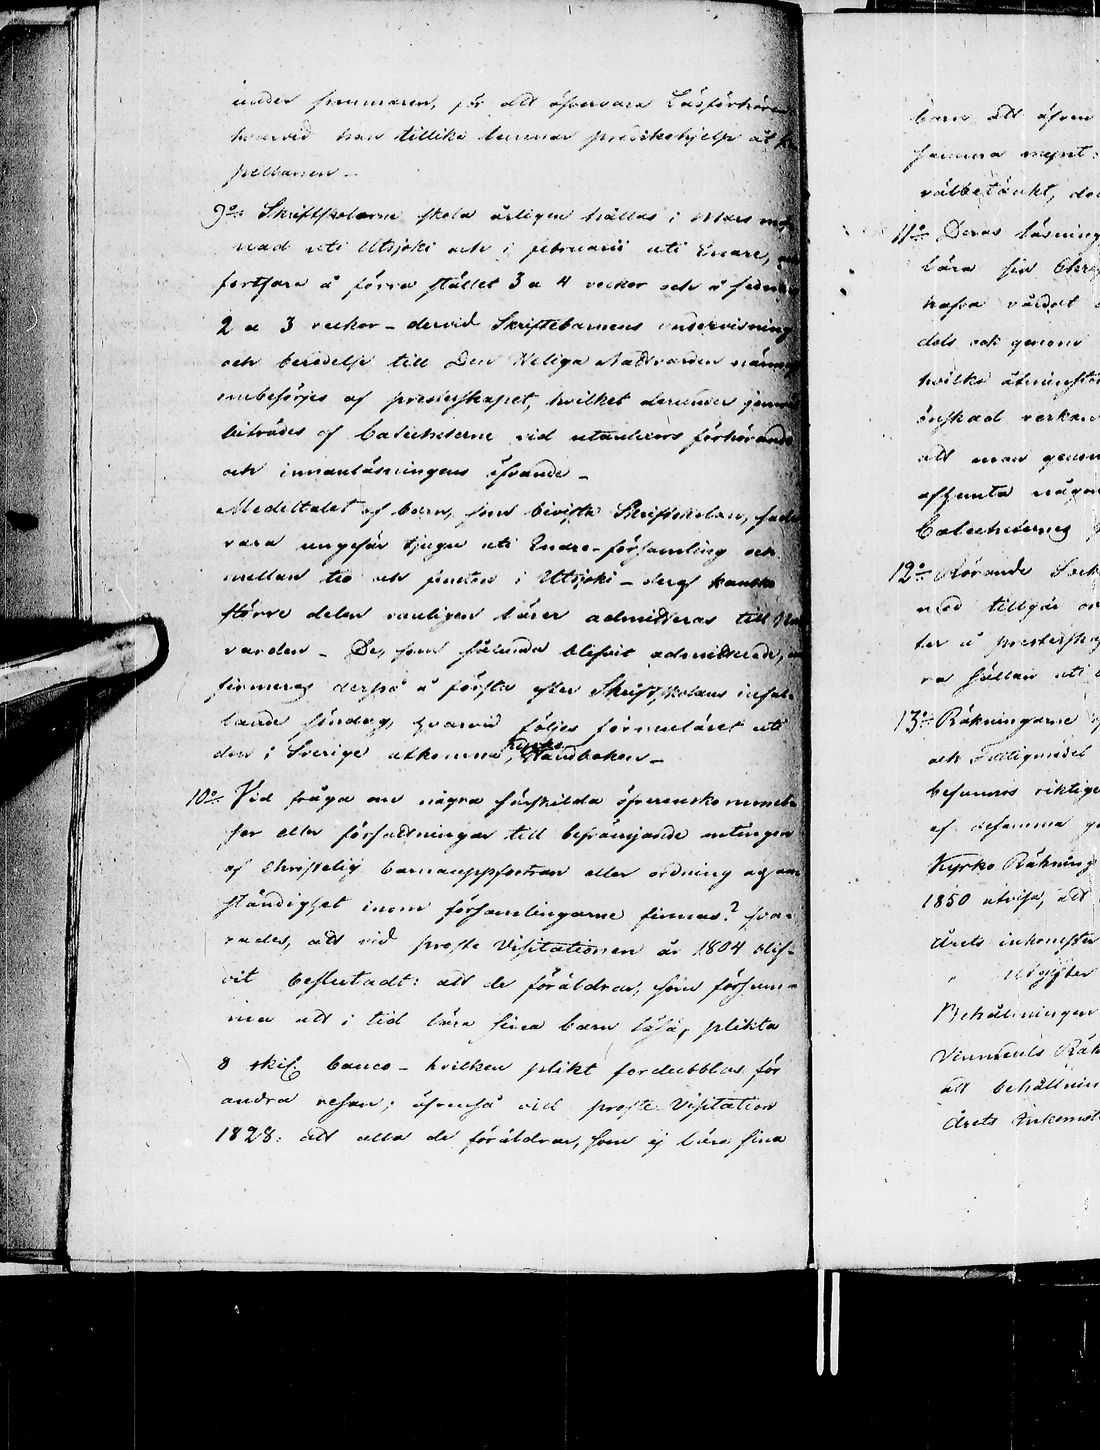 under sommaren, för att öfvervara Läsförhören
hvarvid han tillika lemnar predikohjelp åt
pellanen.
9o Skriftskolorne skola årligen hållas i Mars må-
nad uti Utsjoki och i februarii uti Enare,
fortfara å förra stället 3 a 4 veckor och å sednare
2 a 3 veckor - dervid Skriftebarnens undervisning
och beredelse till Den Heliga Nattvarden
ombesörjes af presterskapet, hvilket derunder
biträdes af Catecheterne vid utanläxors förhörande
och innanläsningens öfvande -
Medeltalet af barn, som bivista Skriftskolan,
vara ungefär tjugu uti Enare-församling och
mellan tio och femton i Utsjoki - deraf kanske
större delen vanligen lärer admitteras till
varden - De, som sålunda blifvit admitterade,
firmeras derpå å första efter Skriftskolans infal-
lande söndag, hvarvid följes formuläret uti
den i Sverige utkomna Kyrko Handboken -
10o Vid fråga om några särskilda öfverenskommel-
ser eller författningar till befrämjande antingen
af Christelig barnauppfostran eller ordning och an-
ständighet inom församlingarne finnas? sva-
rades, att vid proste Visitationen år 1804 blif-
vit beslutadt: att de föräldrar, som försum-
ma att i tid lära sina barn läsa, plikta
8 skil. banco - hvilken plikt fordubblas för
andra resan; äfvenså vid proste Visitation
1828: att alla de föräldrar, som ej lära sina
barn att äfven
samma
välbetänkt,
11o Deras läsning
lära sin
hafva vårdat
dels och genom
hvilka åtminstone
önskad verkan
att man genom
afhemta någon
Catecheternes
12o Rörande
med tillgår
ter å presterskap
ra sällan uti
13o Räkningarne
och Fattigmedel
befunnos riktige
af desamma
Kyrko Räkning
1850 utvisa, att
Årets inkomster
" utgifter
Behållningen
att behållnin
Årets Inkomst